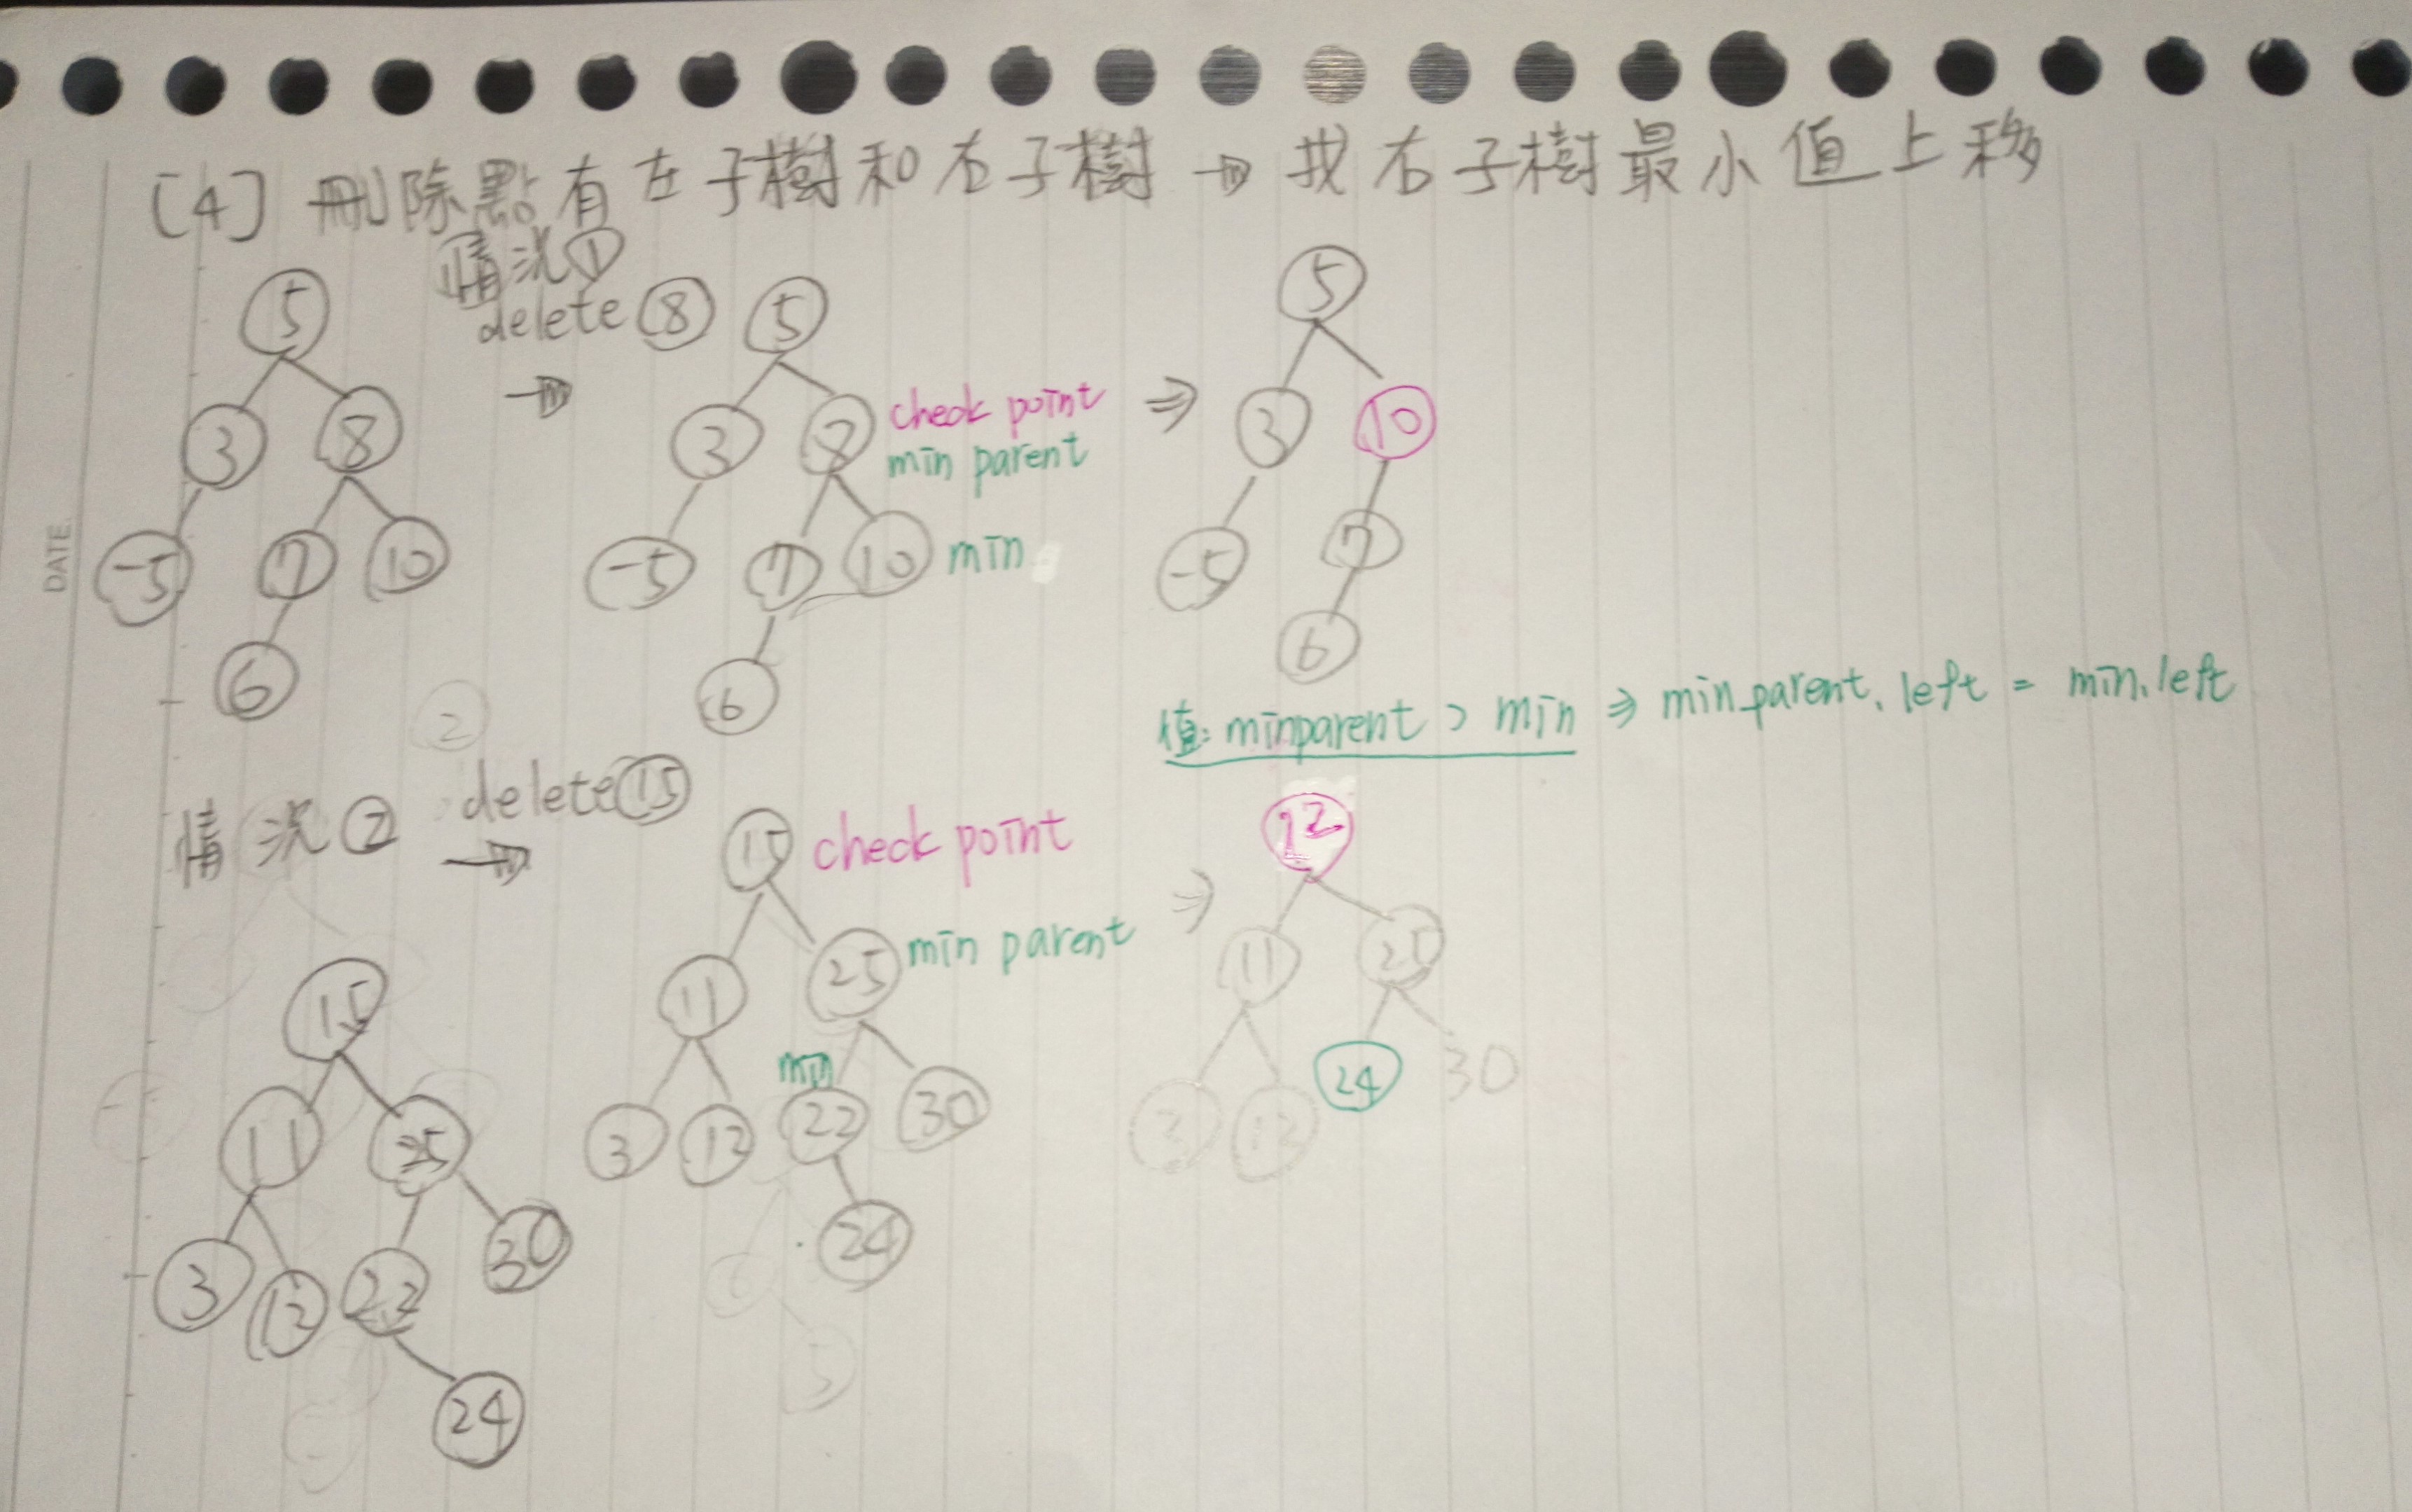 [4] 刪除點有左子樹和右子樹 → 找右子樹最小值上移
情況①
delete ⑧
5
3 8
-5 7 10
6
5
3 8 check point
min parent
-5 7 10 min
6
⇒
5
3 10
-5 7
6
值: minparent > min ⇒ min parent.left = min.left
情況② delete ⑮
15
11 25
3 12 22 30
24
15 check point
11 25 min parent
min
3 12 22 30
24
⇒
12
11 25
3 12 24 30
DATE